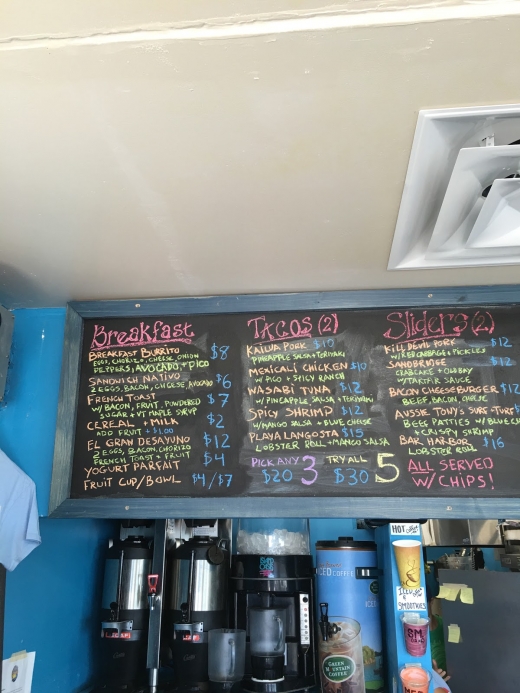 Breakfast
Breakfast Burrito $8
Eggs, Chorizo, Cheese, Onion
Peppers, Avocado, + Pico
Sandwich Nativo $6
2 Eggs, Bacon, Cheese, Avocado
French Toast $7
w/ Bacon, Fruit, Powdered
Sugar + VT Maple Syrup
Cereal + Milk $2
Add Fruit + $1.00
El Gran Desayuno $12
2 Eggs, Bacon, Chorizo
French Toast & Fruit
Yogurt Parfait $4
Fruit Cup/Bowl $4/$7
Tacos (2)
Kailua Pork $10
Pineapple Salsa + Teriyaki
Mexicali Chicken $10
w/ Pico + Spicy Ranch
Wasabi Tuna $12
w/ Pineapple Salsa + Teriyaki
Spicy Shrimp $12
w/ Mango Salsa + Blue Cheese
Playa Langosta $15
Lobster Roll + Mango Salsa
Pick Any 3 $20
Try All 5 $30
Sliders (2)
Kill Devil Pork $12
w/ Red Cabbage + Pickles
Sandbridge $12
Crabcake + Old Bay
w/ Tartar Sauce
Bacon Cheeseburger $12
Beef, Bacon, Cheese
Aussie Tony's Surf + Turf
Beef Patties w/ Blue
+ Crispy Shrimp
Bar Harbor $16
Lobster Roll
All Served
w/ Chips!
Hot
Iced
Smoothies
Iced Coffee
Iced
Green Mountain
Coffee